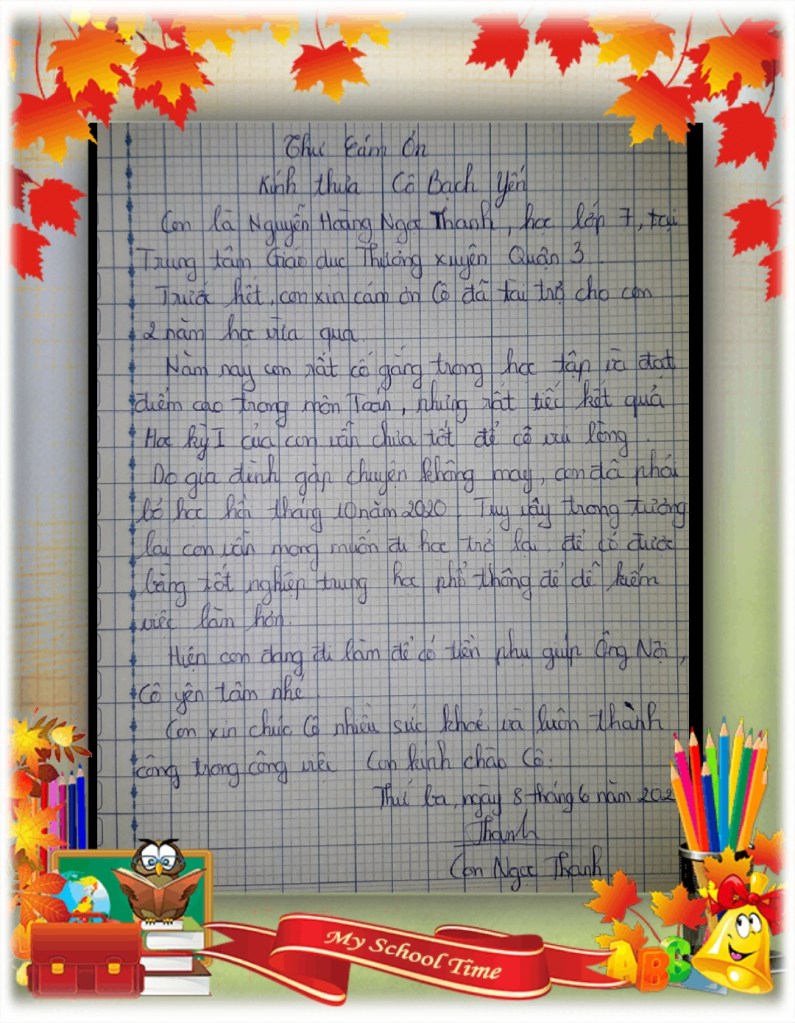 Thư Cám Ơn
Kính thưa Cô Bạch Yến
Con là Nguyễn Hoàng Ngọc Thanh, học lớp 7, tại
Trung tâm Giáo dục Thường xuyên Quận 3.
Trước hết, con xin cám ơn Cô đã tài trợ cho con
2 năm học vừa qua.
Năm nay con rất cố gắng trong học tập và đạt
điểm cao trong môn Toán, nhưng rất tiếc kết quả
Học kỳ I của con vẫn chưa tốt để cô vui lòng.
Do gia đình gặp chuyện không may, con đã phải
bỏ học hồi tháng 10 năm 2020. Tuy vậy trong tương
lai con vẫn mong muốn đi học trở lại để có được
bằng tốt nghiệp trung học phổ thông để dễ kiếm
việc làm hơn.
Hiện con đang đi làm để có tiền phụ giúp Ông Nội,
Cô yên tâm nhé.
Con xin chúc Cô nhiều sức khoẻ và luôn thành
công trong công việc. Con kính chào Cô.
Thứ ba, ngày 8 tháng 6 năm
Thanh
Con Ngọc Thanh
My School Time
ABC